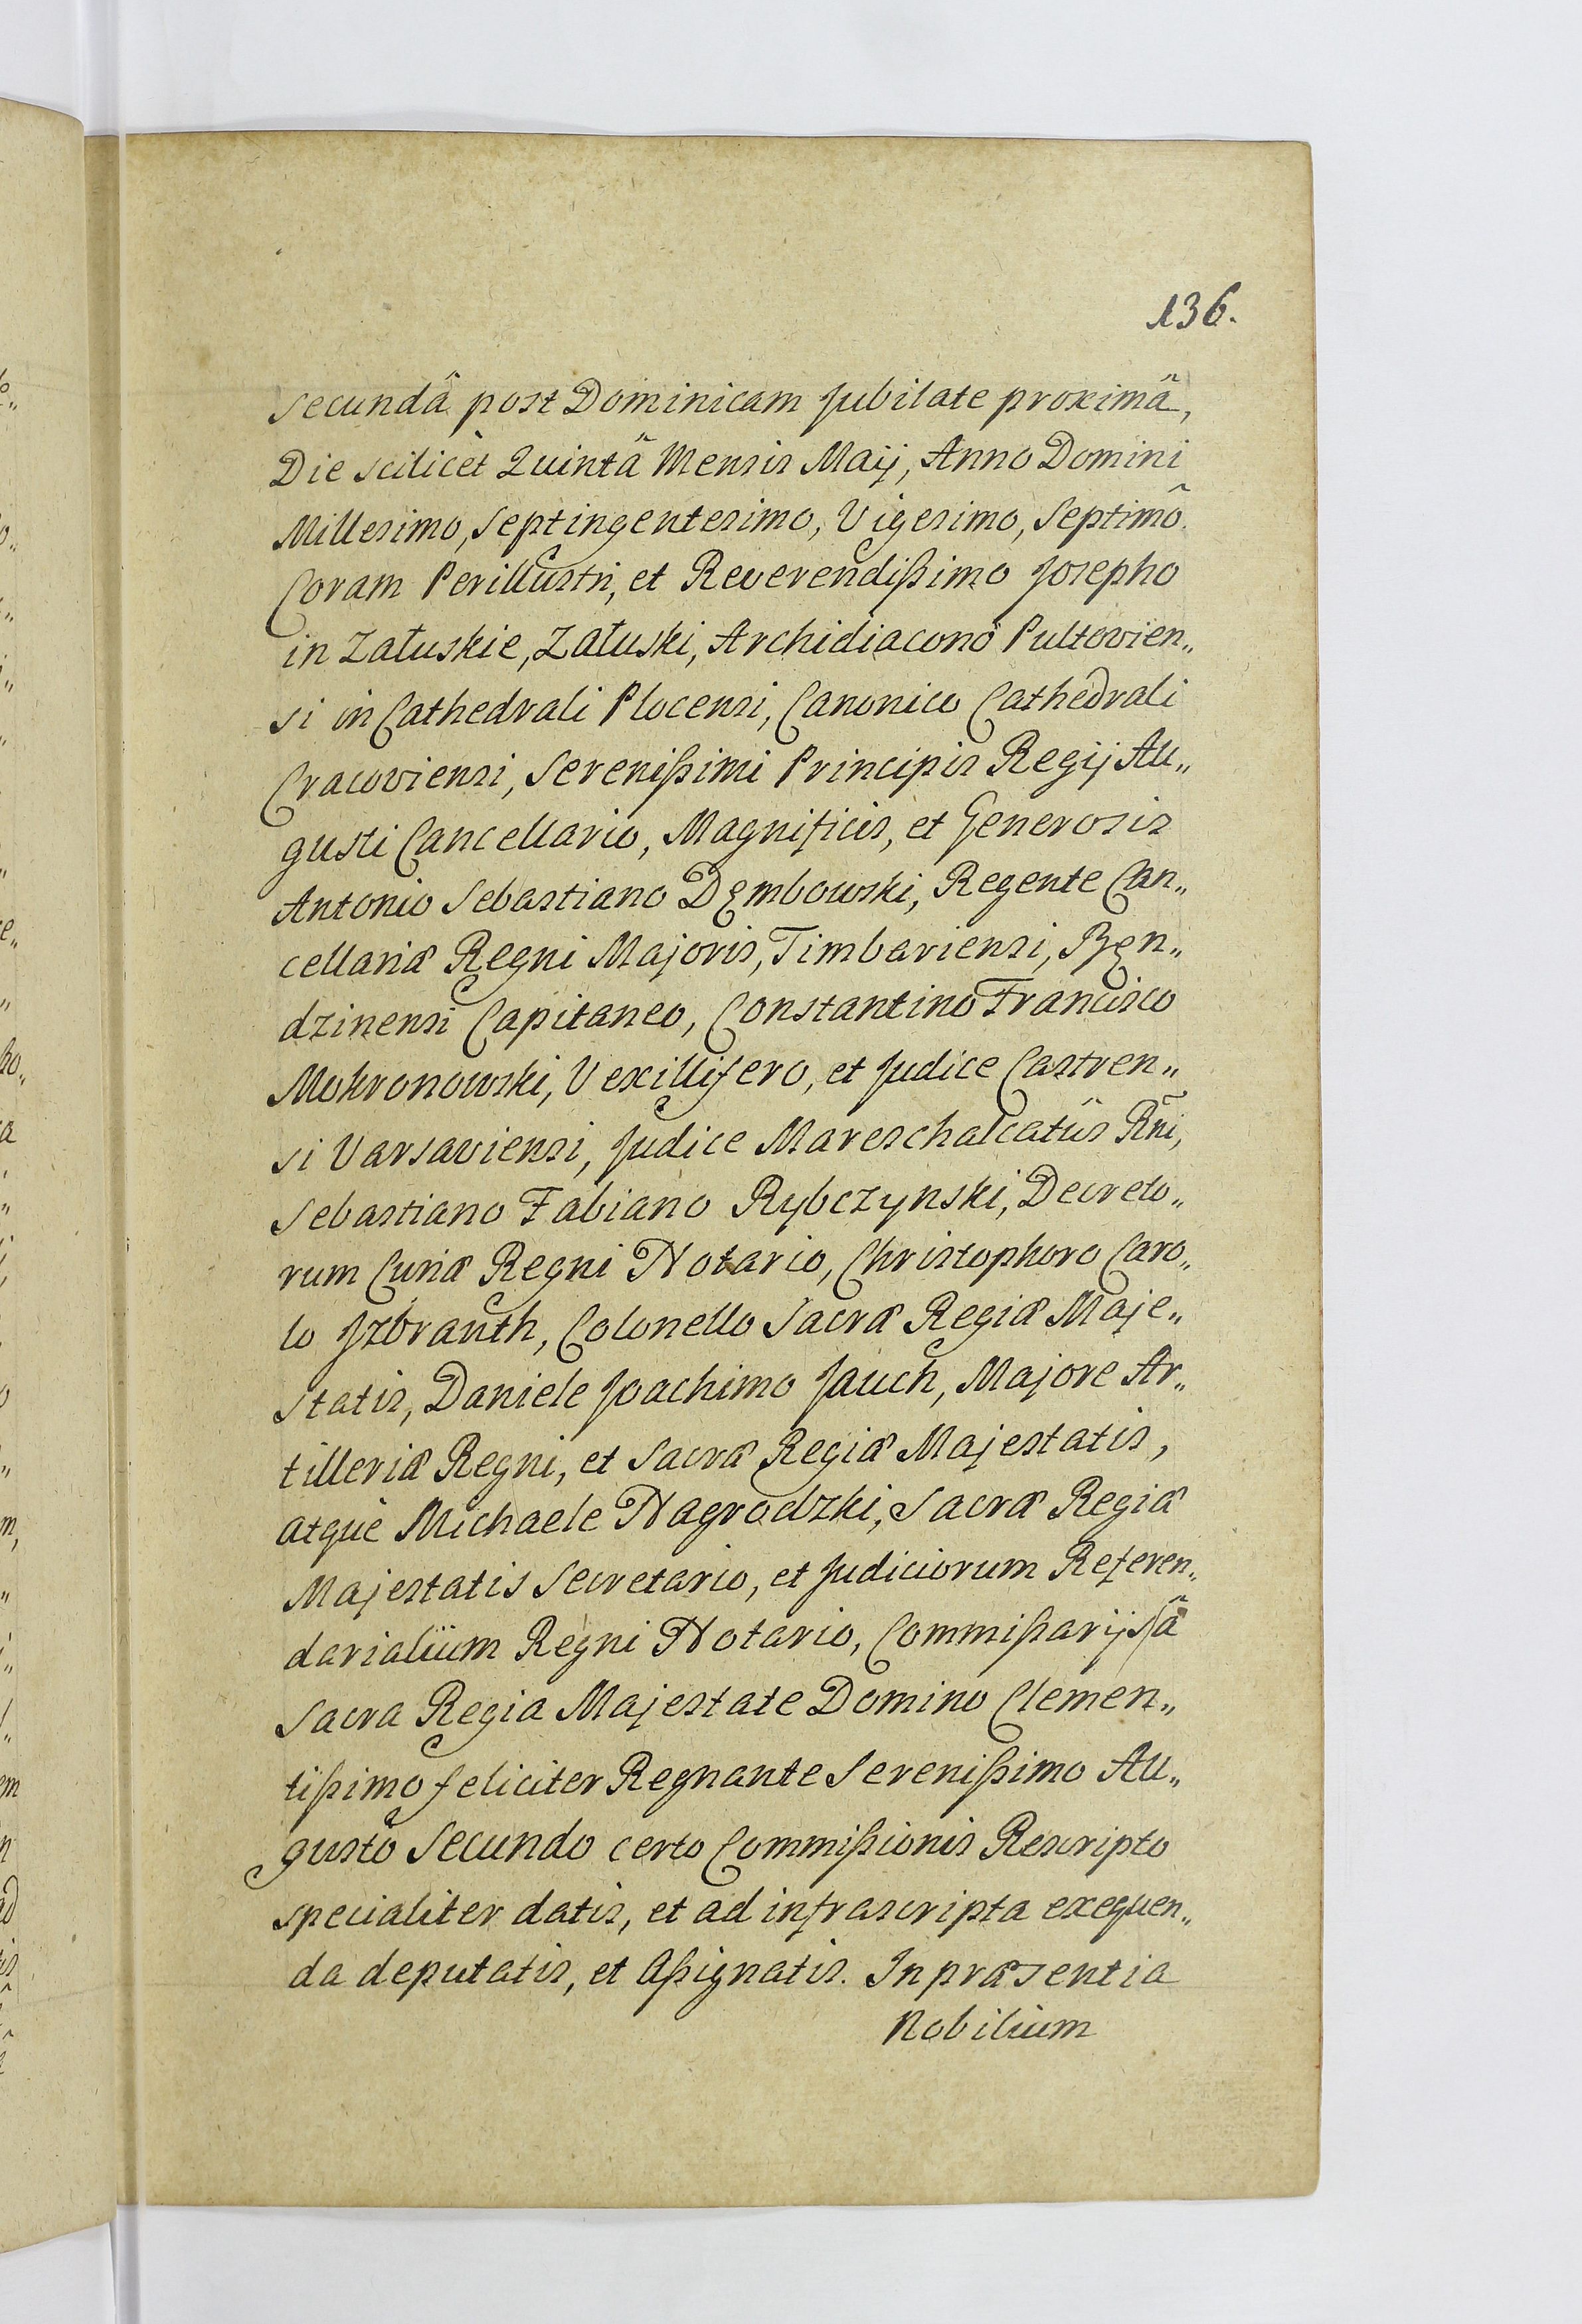 136.
secundâ post Dominicam Jubilate proximâ,
Die scilicèt Quintâ Mensis Maij, Anno Domini
Millesimo, Septingentesimo, Vigesimo, Septimô.
Coram Perillustri, et Reverendißimo Josepho
in Załuskie, Załuski, Archidiacono Pultovien„
si in Cathedrali Plocensi, Canonico Cathedrali
Cracoviensi, Serenißimi Principis Regij Au„
gusti Cancellario, Magnificis, et Generosis
Antonio Sebastiano Dęmbowski, Regente Can„
cellariæ Regni Majoris, Timbariensi, Bęn„
dzinensi Capitaneo, Constantino Francisco
Mokronowski, Vexillifero, et Judice Castren„
si Varsaviensi, Judice Mareschalcatûs Rñi,
Sebastiano Fabiano Rybczynski, Decreto„
rum Curiæ Regni Notario, Christophoro Caro„
lo Jzbranth, Colonello Sacræ Regiæ Maje„
statis, Daniele Joachimo Jauch, Majore Ar„
tilleriæ Regni, et Sacræ Regiæ Majestatis,
atque Michaele Nagrodzki, Sacræ Regiæ
Majestatis Secretario, et Judiciorum Referen„
darialium Regni Notario, Commißarijs â
Sacra Regia Majestate Domino Clemen„
tißimo feliciter Regnante Serenißimo Au„
gusto Secundo certo Commißionis Rescripto
specialiter datis, et ad infrascripta exequen„
da deputatis, et Aßignatis. In præsentia
Nobilium
e„
ho„
m,
em